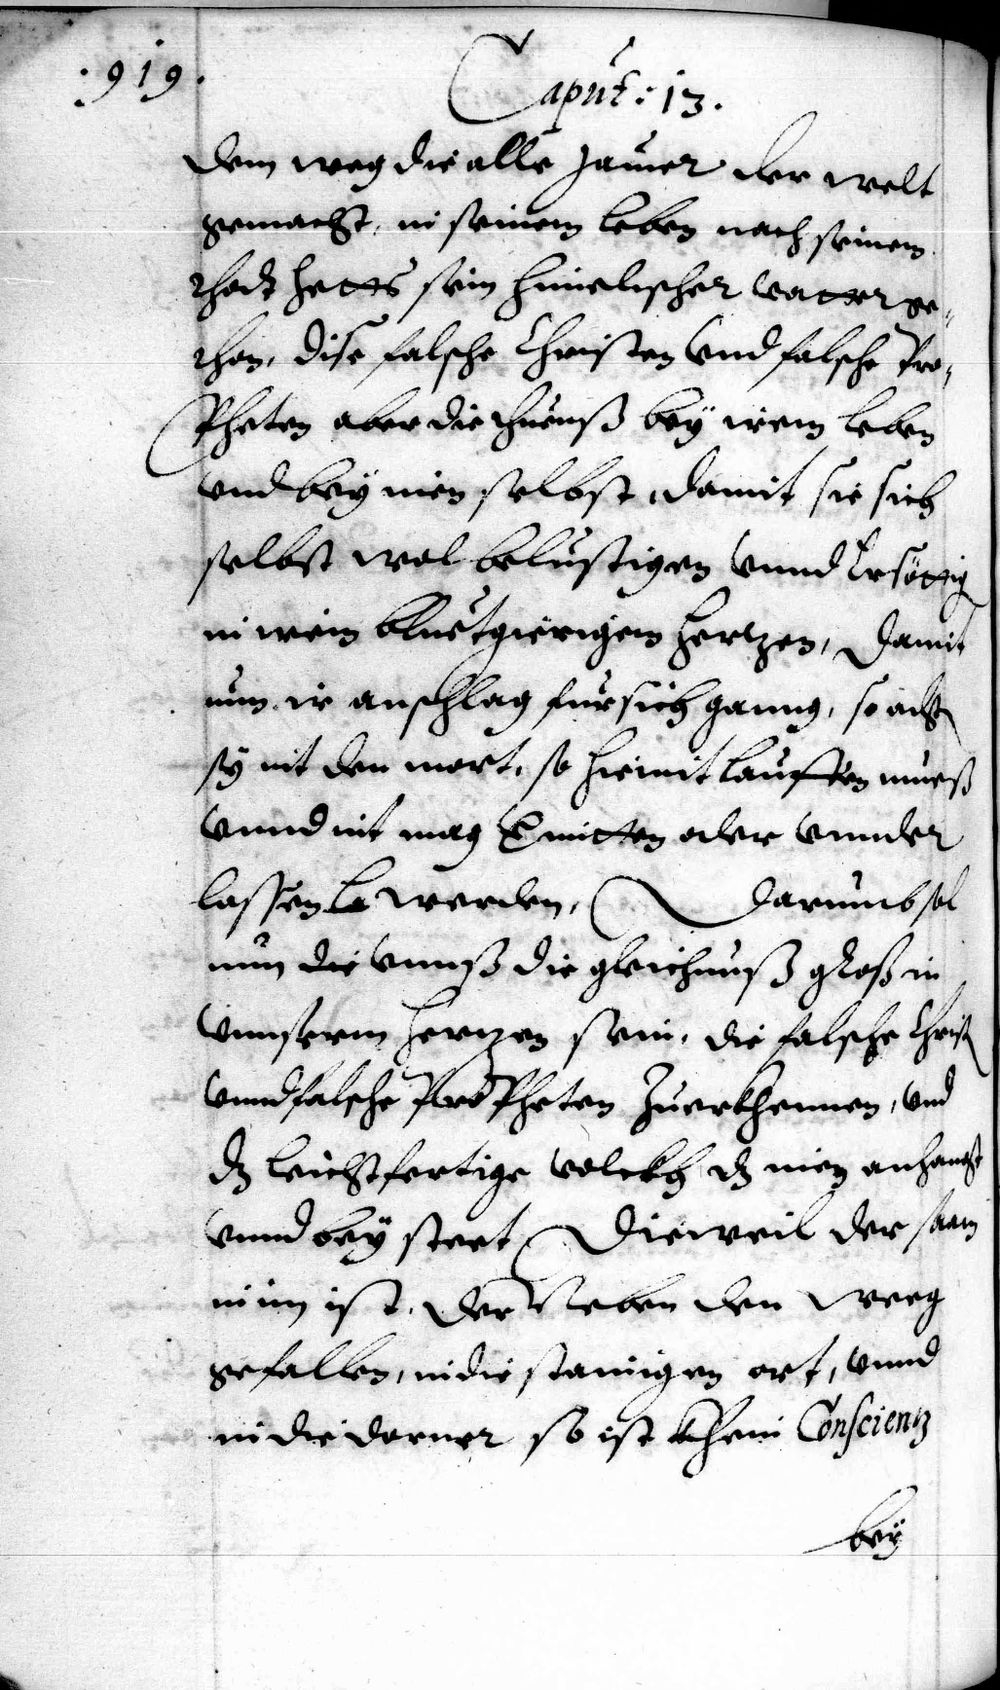 :919.
Caput: 13.
dem weg die alle Jamer der welt
gemacht, in seinem leben nach seinem
thodt hetts sein himelischer vatter ge-
than, dise falsche Christen vnd falsche Pro-
Pheten aber die thuenß bey irem leben
vnd bey inen selbst, damit sie sich
selbst wol belustigen vnnd Ersöttig
in irem bluetgirigem hertzen, Damit
nun ir anschlag fürsich ganng, so acht
sy nit den mort, so hiemit lauffen mueß
vnnd nit mag Emitten oder vnnder
lassen werden, Darumb sol
nun die vnnß die gleichnuß groß in
vnnserem hertzen sein, die falsche Christ
vnnd falsche Propheten Zuerkhennen, vnd
dz leichtfertige volckh dz inen anhangt
vnnd bey steet, Dieweil der saam
in im ist, der Neben den weeg
gefallen, in die stainigen ort, vnnd
in die dorner so ist khein Conscientz
bey